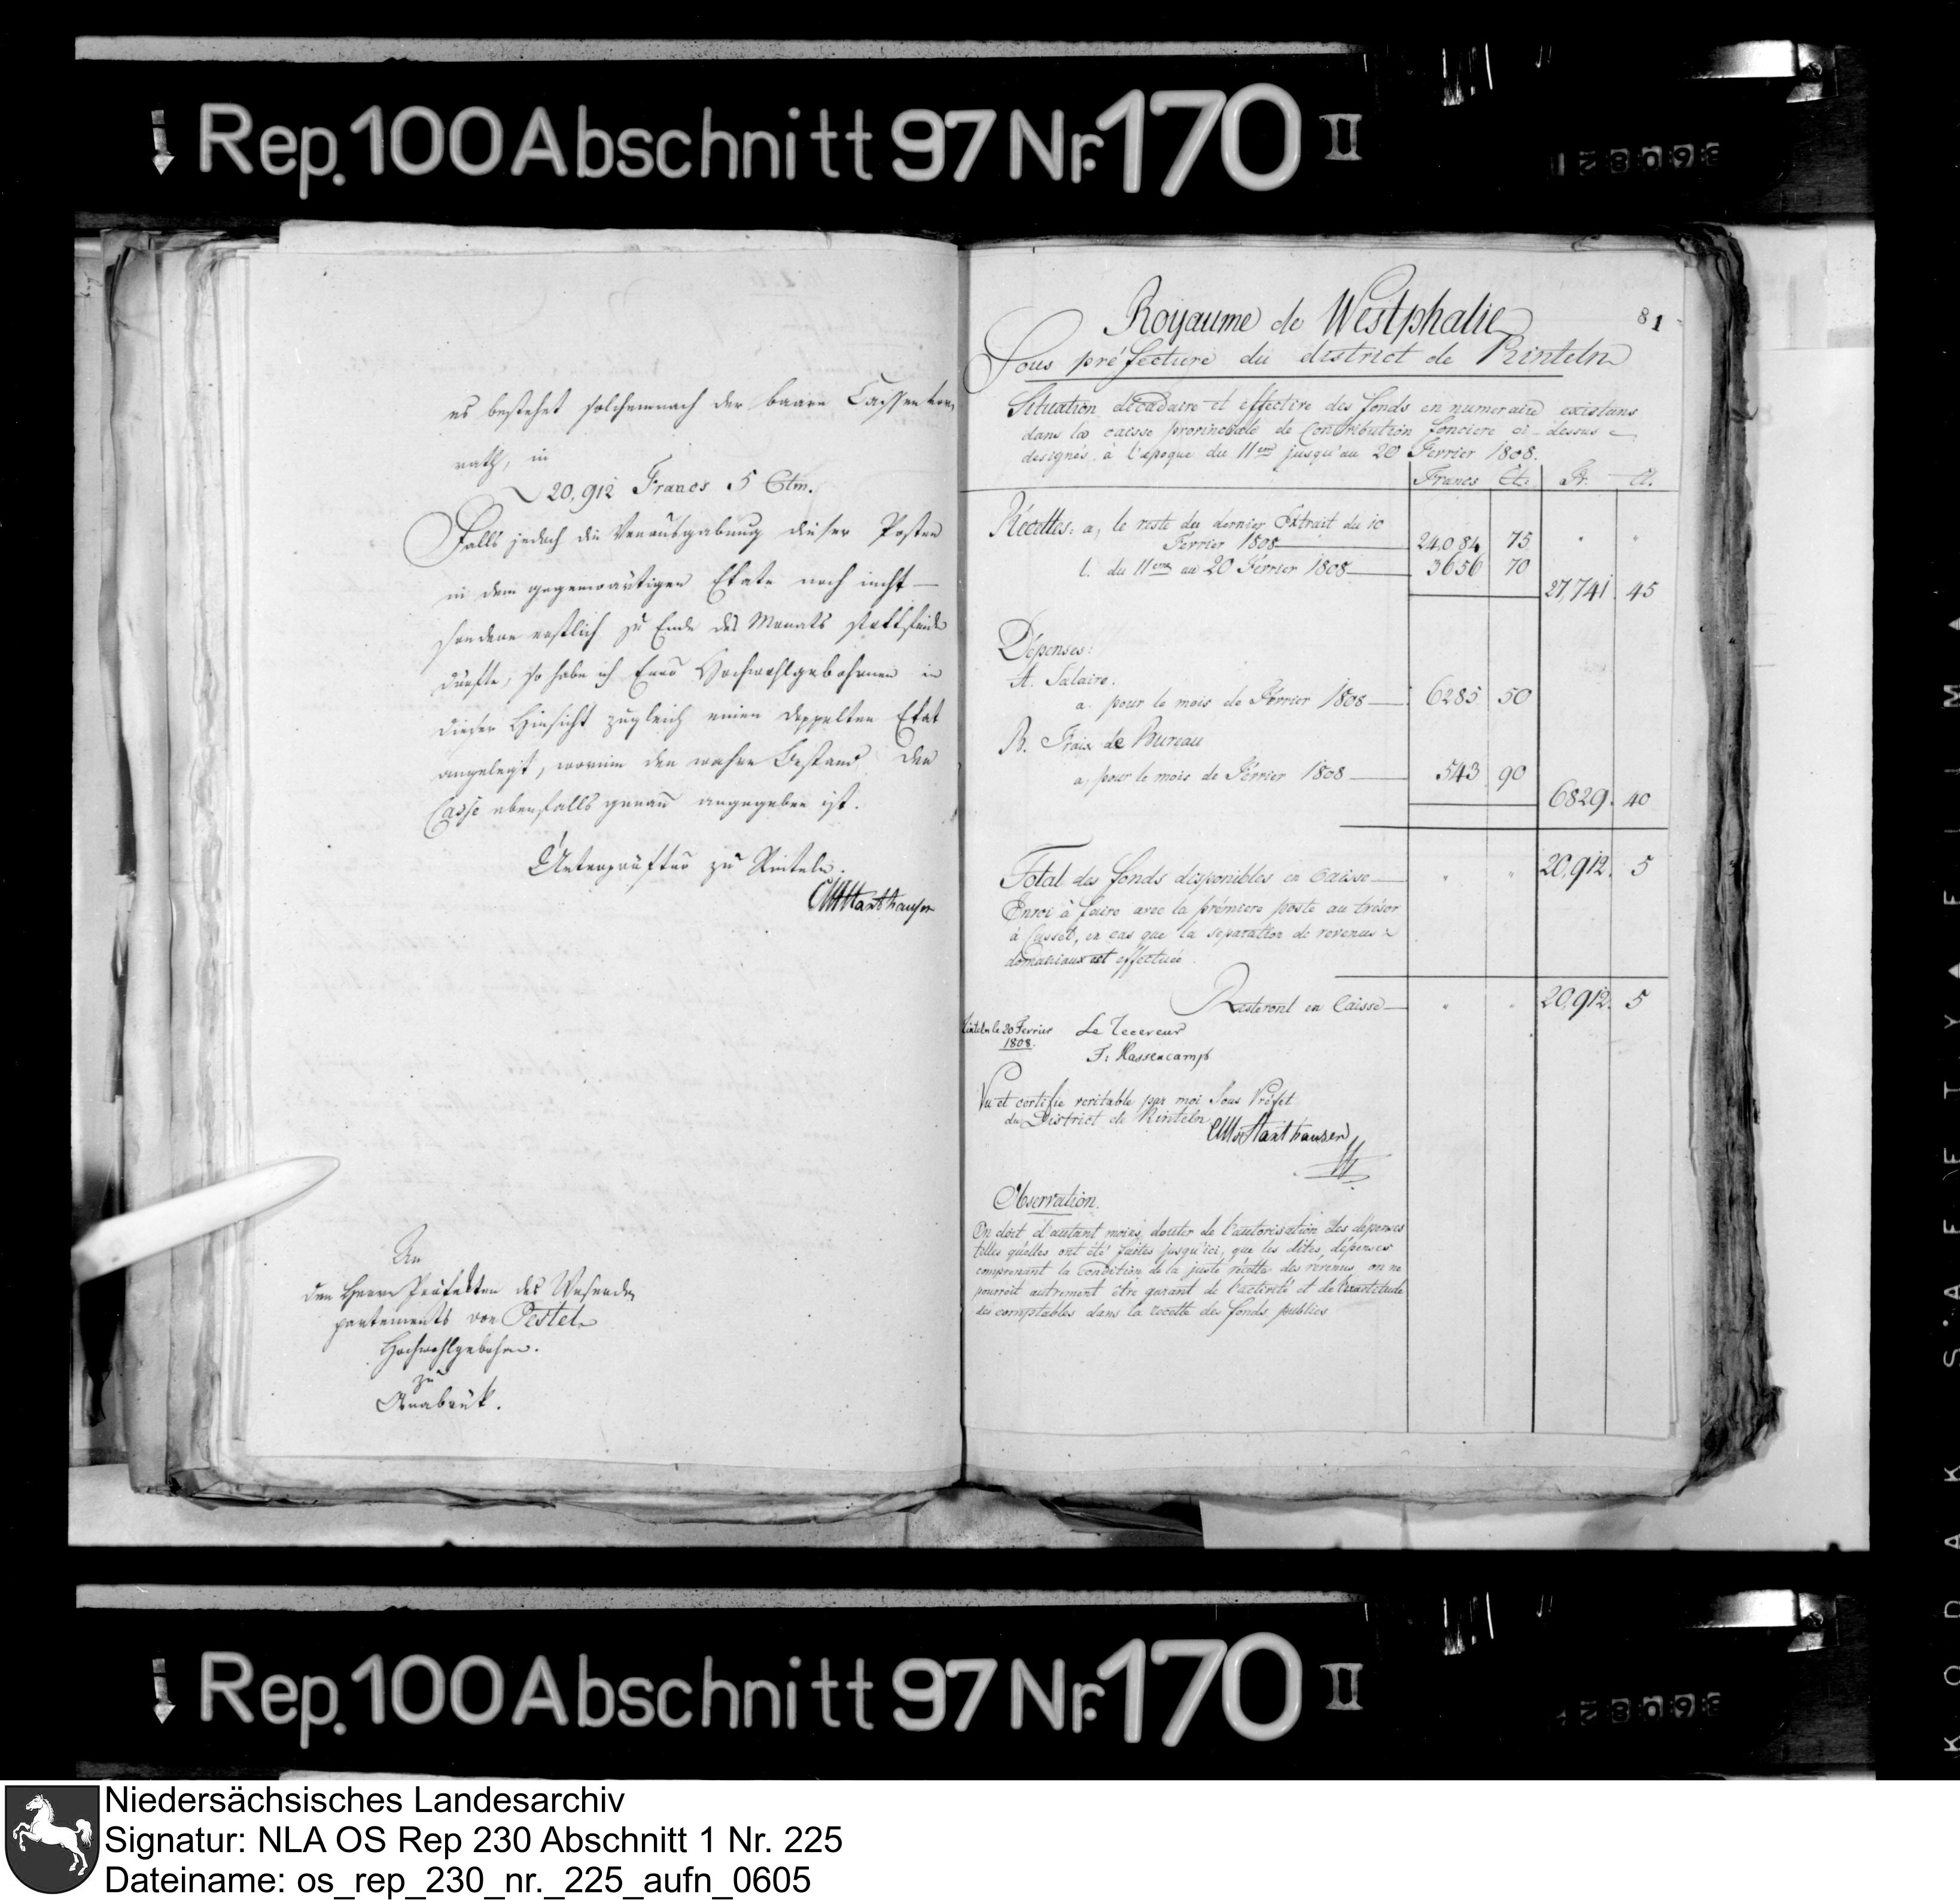 Rep. 100 Abschnitt 97 Nr. 170 II
es bestehet solchemnach der baare Cassenvor¬
rath, in
20,912 Francs 5 Ctm.
Falls jedoch die Verausgabung dieser Posten
in dem gegenwärtigen Etate noch nicht —
sondern erstlich zu Ende des Monats stattfinden
dürfte, so habe ich Euer Hochwohlgebohrnen in
dieser Hinsicht zugleich einen doppelten Etat
angelegt, worinn der wahre Bestand der
Casse ebenfalls genau angegeben ist.
Unterpräfectur zu Rinteln.
An
den Herrn Präfekten des Weserde¬
partements von Pestel
Hochwohlgebohrn.
zu
Osnabrük.
81
Royaume de Westphalie
Sous préfecture du district de Rinteln
Situation décadaire et effective des fonds en numeraire existans
dans la caisse provinciale de Contribution fonciere ci-dessus
designés à l'epoque du 11eme jusqu'au 20 Fevrier 1808.
Francs Ct: Fr. Ct.
Récettes: a, le reste du dernier Extrait du 10
Fevrier 1808 24,084 75 " "
b. du 11eme au 20 Février 1808 3656 70
27,741. 45
Dépenses:
A. Salaire.
a. pour le mois de Février 1808 6285 50
B. Frais de Bureau
a, pour le mois de Février 1808 543 90
6829. 40
Total des fonds disponibles en Caisse " " 20,912. 5
Envoi à faire avec la prémiere poste au trésor
à Cassel, en cas que la séparation de revenus
domaniaux est effectuée.
Resteront en Caisse " " 20,912. 5
Rinteln le 20 Fevrier Le Receveur
1808. F: Hassencamp
Vu et certifie veritable par moi Sous Préfet
du District de Rinteln
Observation.
On doit d'autant moins douter de l'autorisation des dépenses
telles qu'elles ont été faites jusqu'ici, que les dites dépenses
comprenant la condition de la juste récette des revenus on ne
pourroit autrement être garant de l'activité et de l'exactitude
des comptables dans la recette des fonds publics
KODAK SAFETY FILM
Rep. 100 Abschnitt 97 Nr. 170 II
Niedersächsisches Landesarchiv
Signatur: NLA OS Rep 230 Abschnitt 1 Nr. 225
Dateiname: os_rep_230_nr._225_aufn_0605